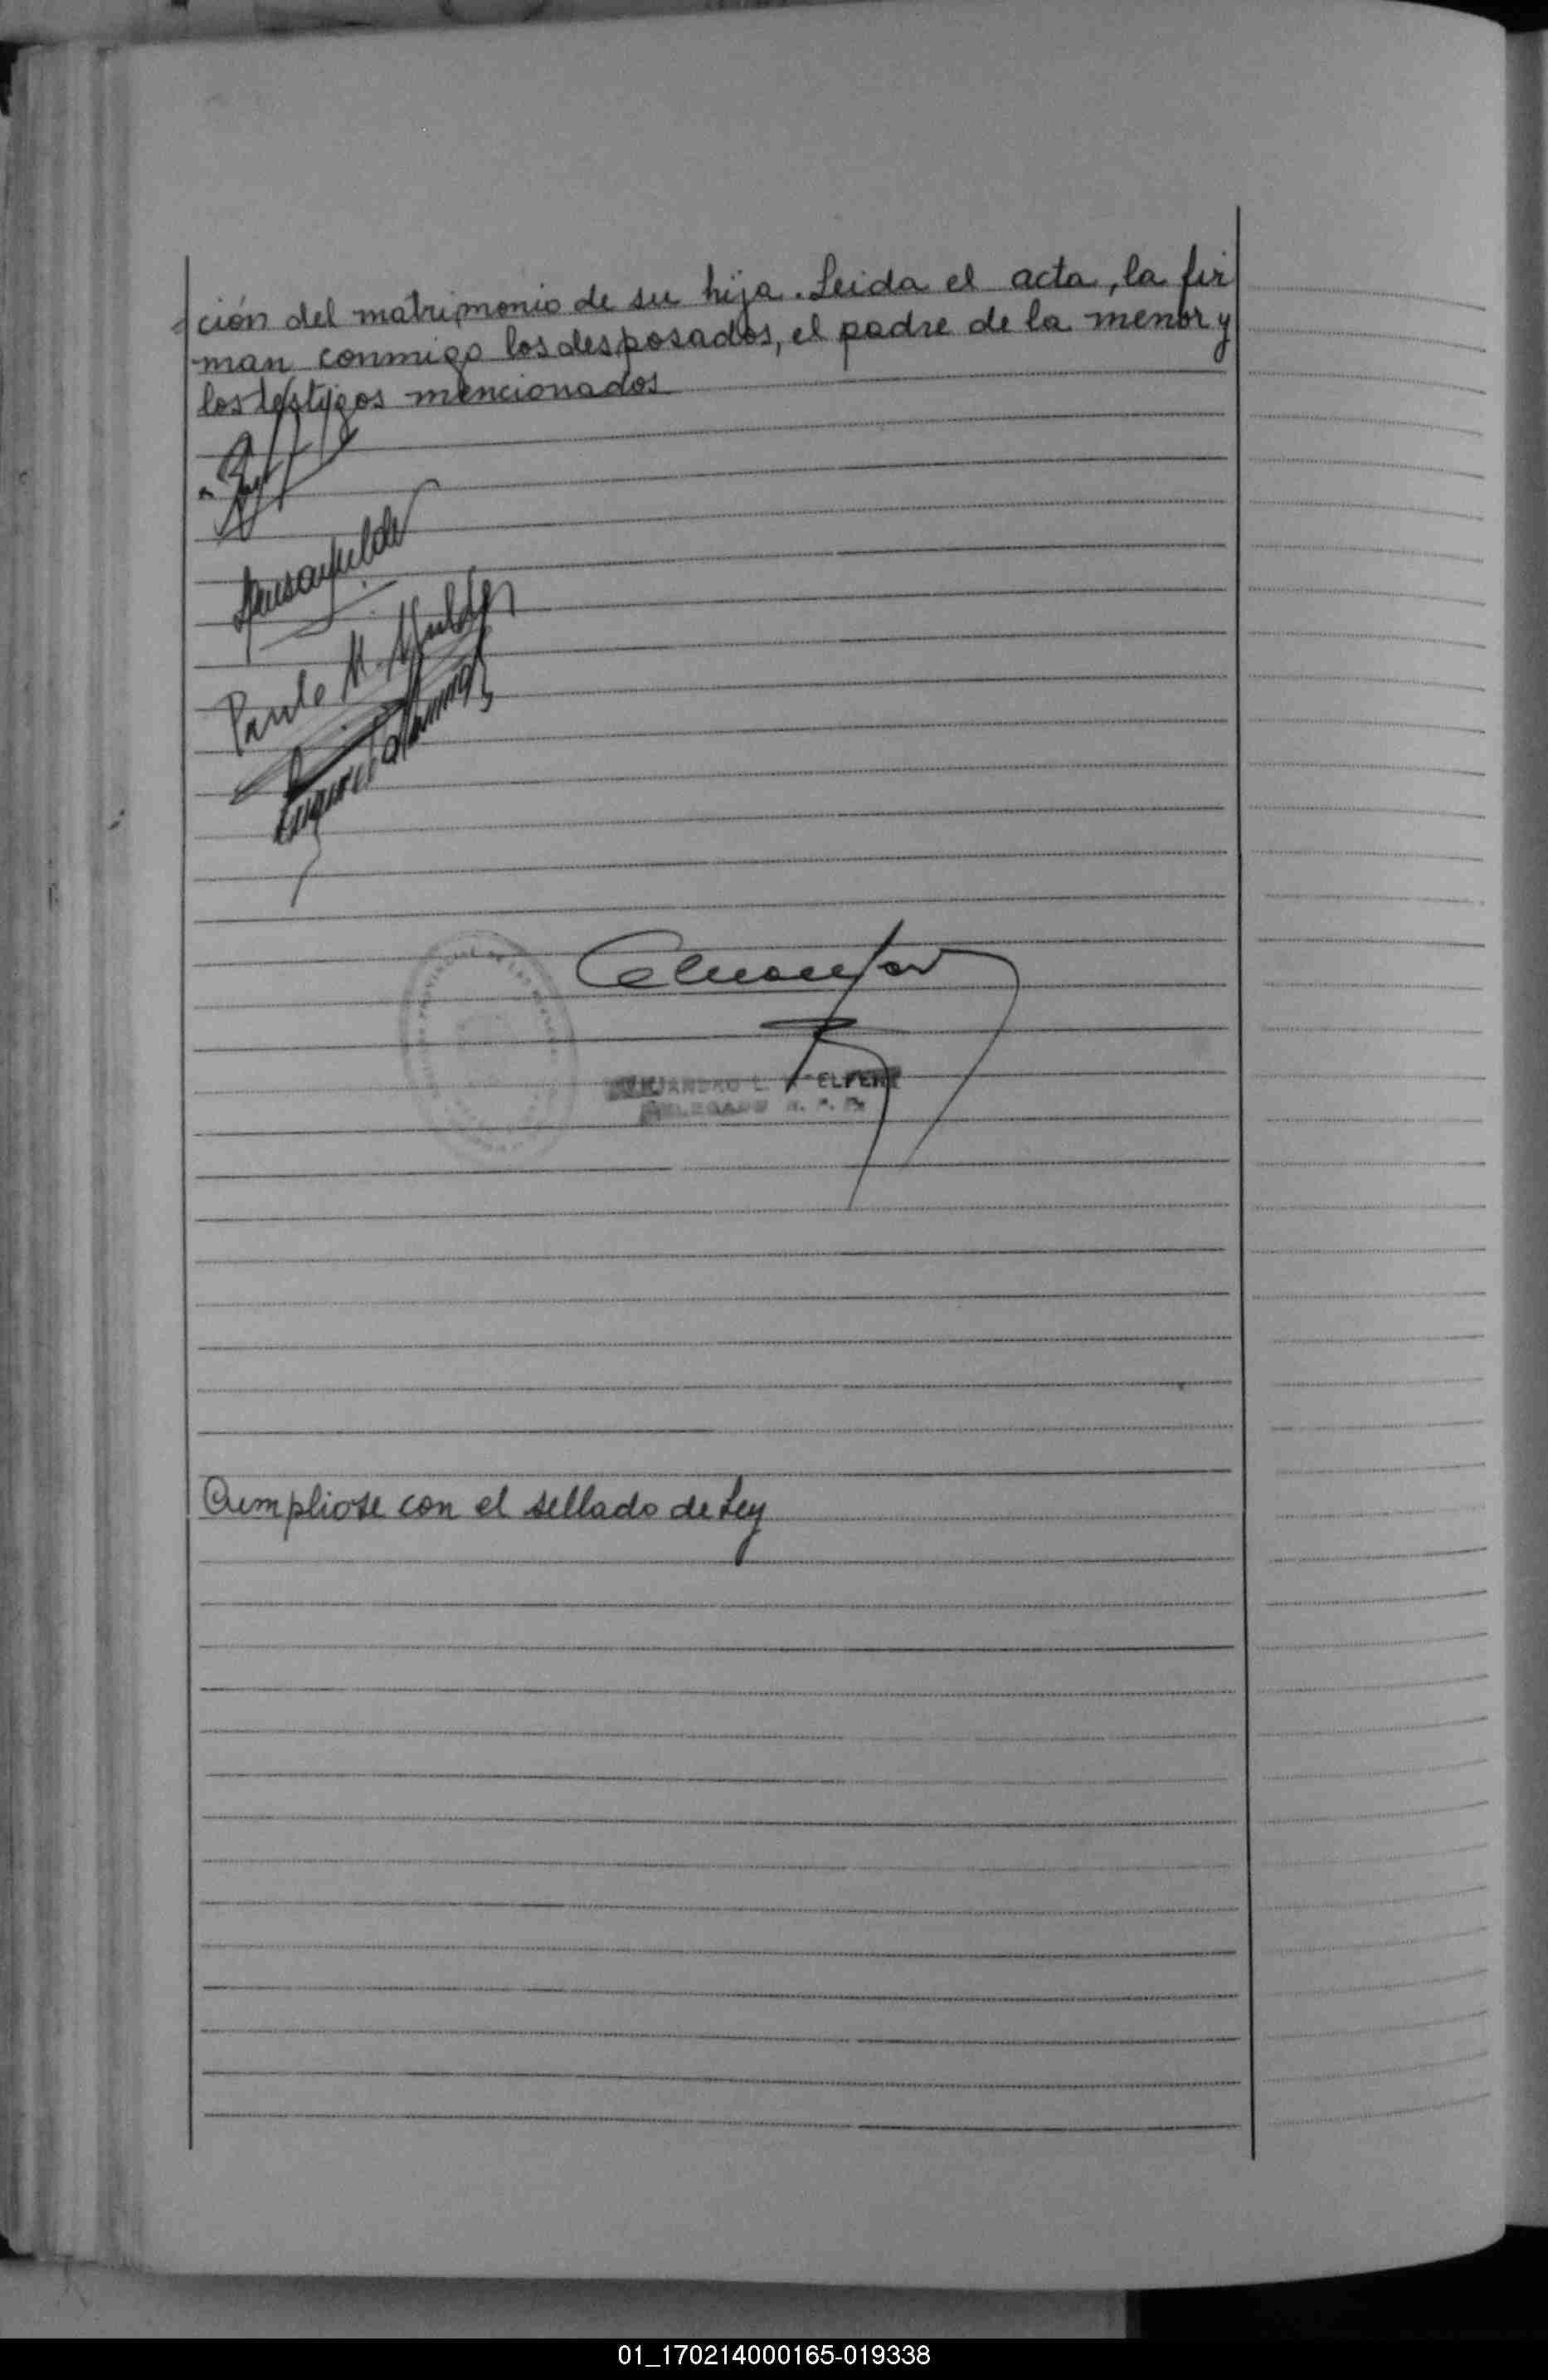 ción del matrimonio de su hija. Leida el acta, la fir
man conmigo los desposados, el padre de la menor y
los testigos mencionados
Paulo M. Mulder
DELEGADO R. P. P.
Cumpliose con el sellado de Ley
01_170214000165-019338